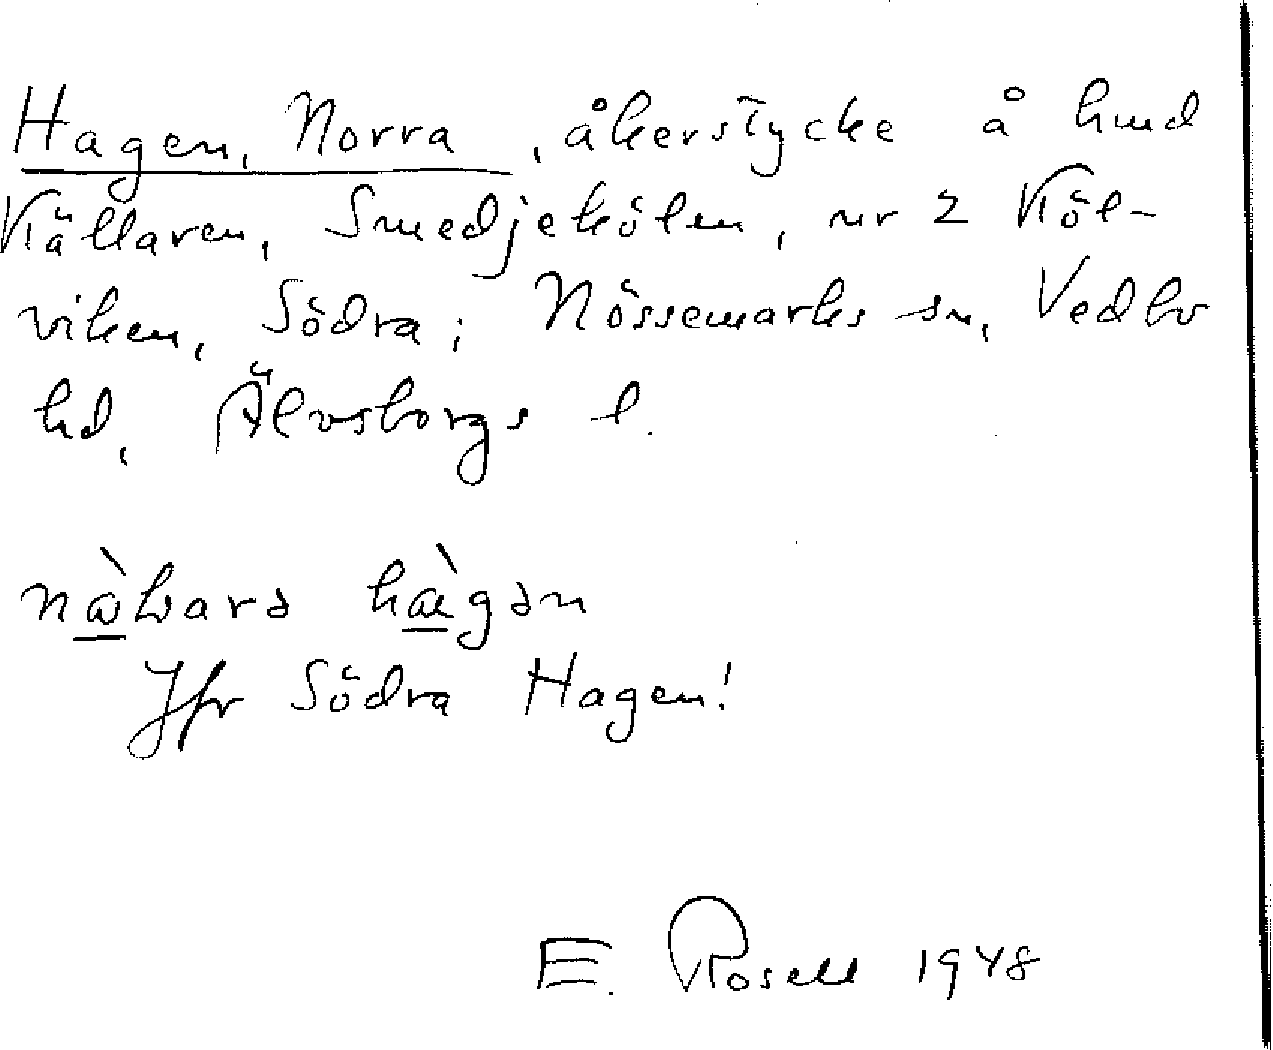 Hagen, Norra, åkerstycke å hmd
Källaren, Smedjekölen, nr 2 Köl-
viken, Södra; Nössemarks sn, Vedbo
hd, Älvsborgs l.
hægən
Jfr Södra Hagen!
E. Rosell 1948